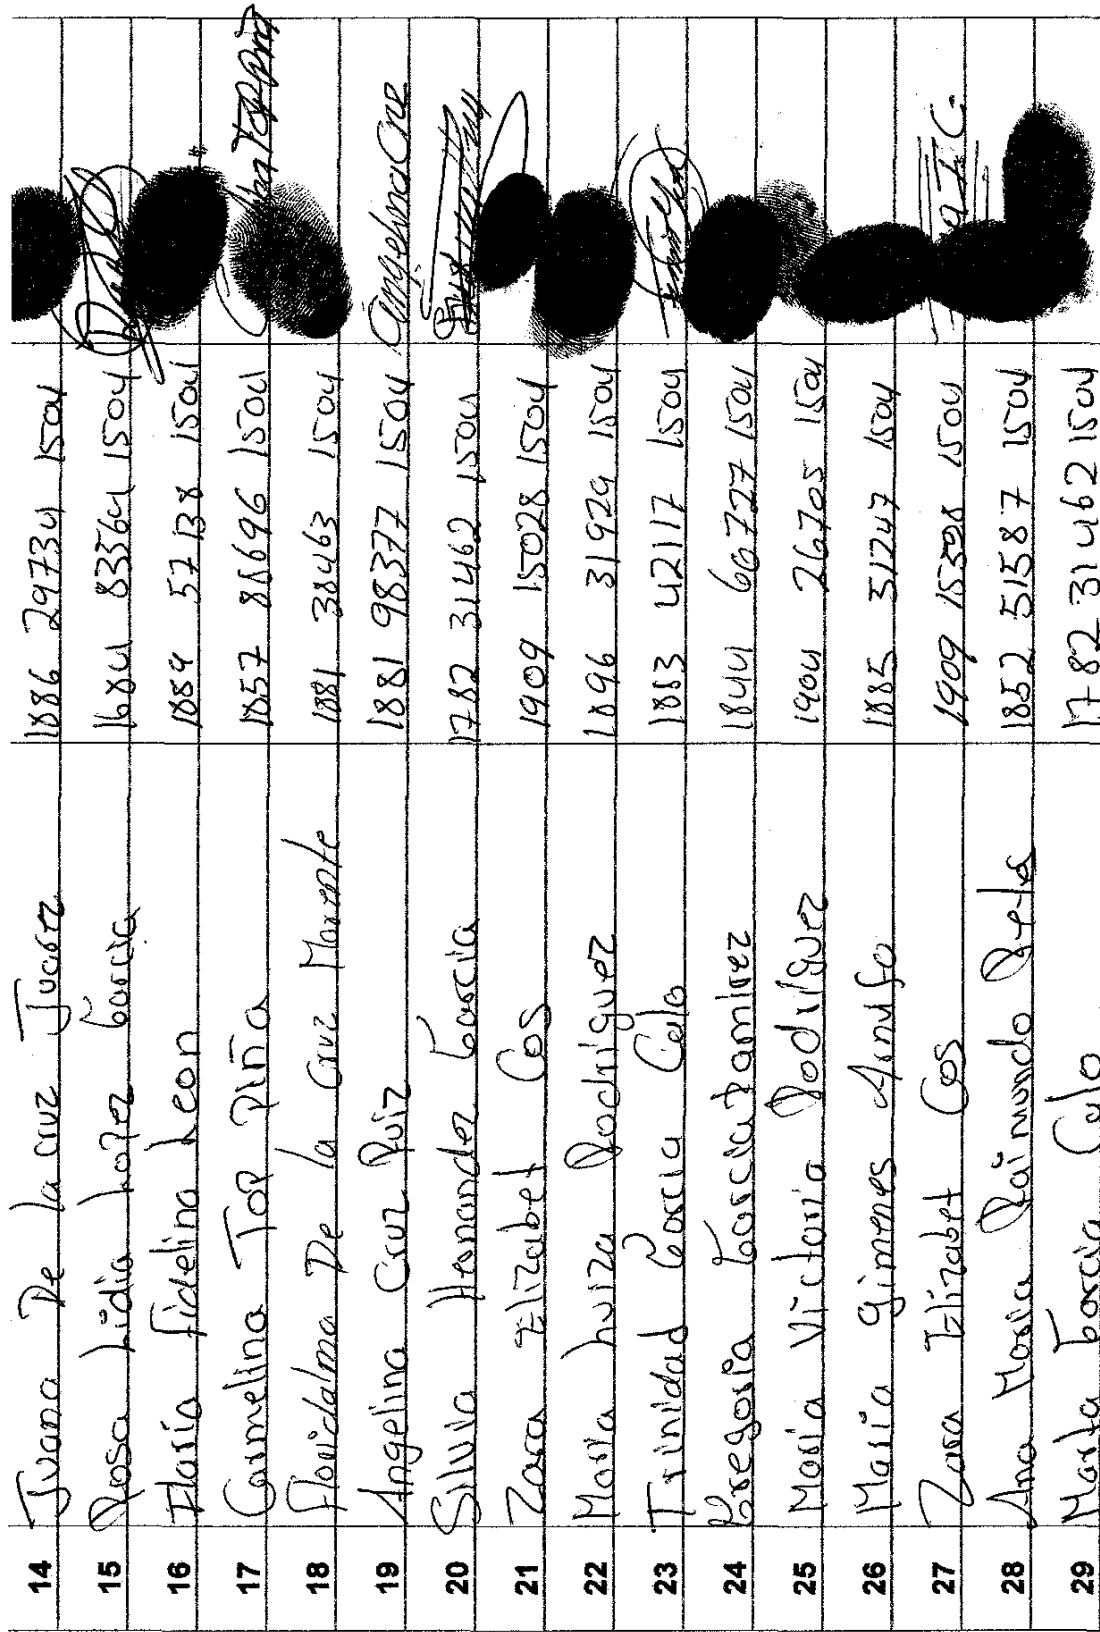 14 Juana De La cruz Juarez 1886 29734 1504
15 Rosa Lidia Lopez Garcia 1684 83364 1504
16 Floria fidelina Leon 1889 57138 1504
17 Carmelina Top Piña 1857 88696 1504
18 Floridalma De la Cruz Morente 1881 38463 1504
19 Angelina Cruz Ruiz 1881 98377 1504 Angelina Cruz
20 Silvia Hernandez Garcia 1782 31462 1504
21 Zara Elizabet Cos 1909 15028 1504
22 Maria Luiza Rodriguez 1896 31929 1504
23 Trinidad Garcia Calo 1883 42117 1504
24 Gregoria Garcia Ramirez 1844 66727 1504
25 Maria Victoria Rodriguez 1904 26705 1504
26 Maria Gimenes Arnulfo 1885 31247 1504
27 Zara Elizabet Cos 1909 15398 1504
28 Ana Maria Raimundo 1852 51587 1504
29 Marta Garcia Calo 1782 31462 1504